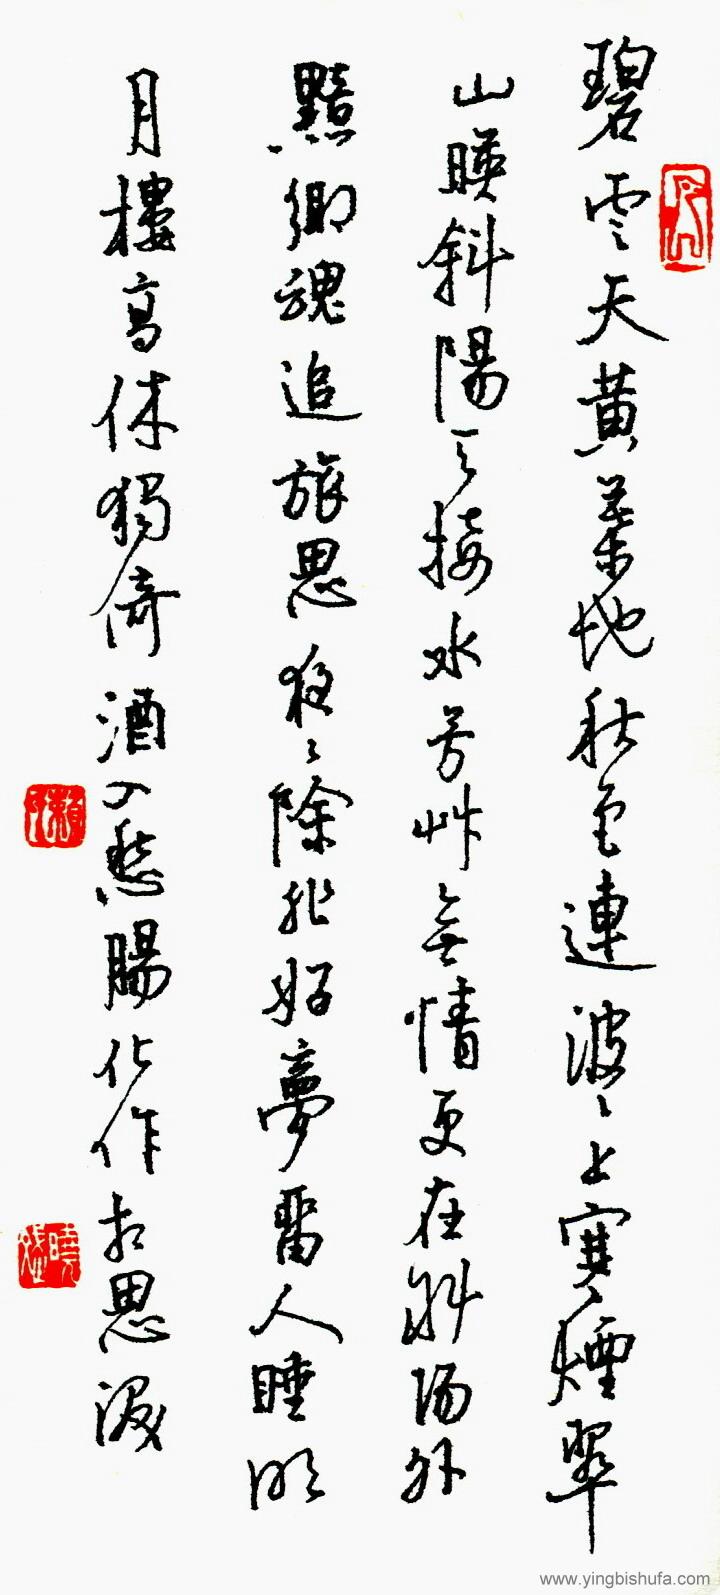 碧雲天黄葉地秋色連波〻上寒煙翠
山暎斜陽天接水芳艸無情更在斜陽外
黯鄉魂追旅思夜〻除非好夢留人睡明
月樓高休獨倚酒入愁腸化作相思淚
www.yingbishufa.com